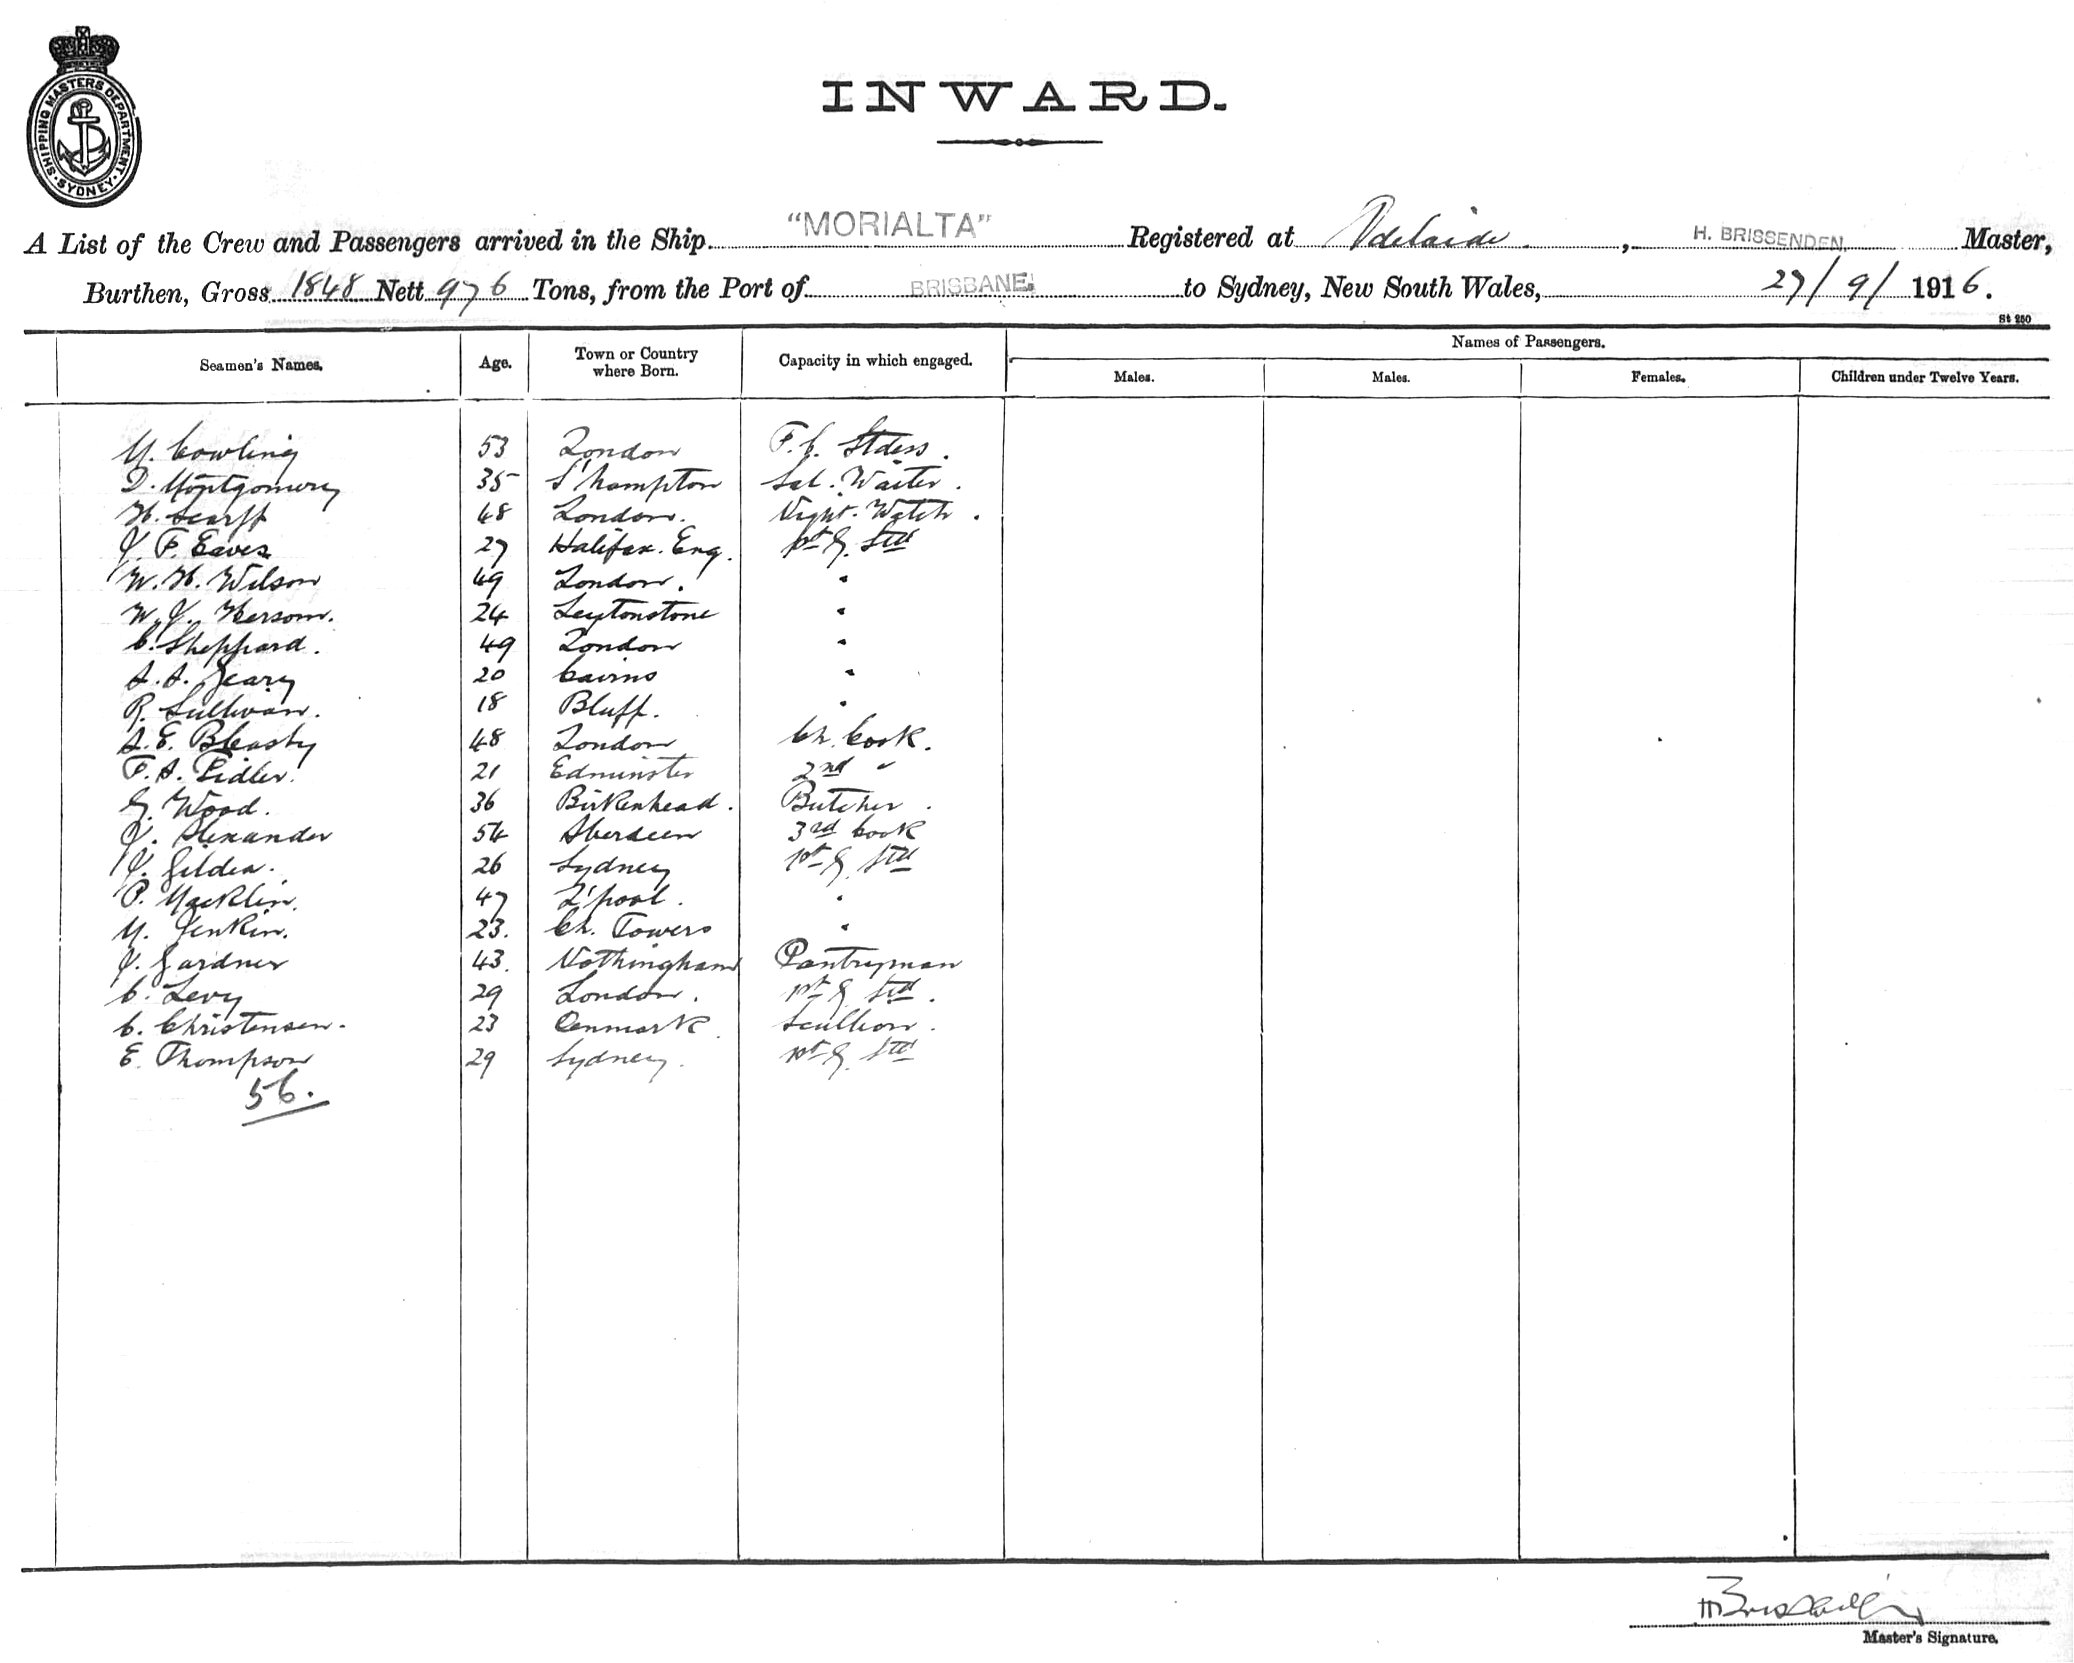 SHIPPING MASTERS DEPARTMENT · SYDNEY ·
INWARD.
A List of the Crew and Passengers arrived in the Ship "MORIALTA" Registered at Adelaide, H. BRISSENDEN Master,
Burthen, Gross 1848 Nett 976 Tons, from the Port of BRISBANE. to Sydney, New South Wales, 27/9/1916.
St 250
Seamen's Names. Age. Town or Country where Born. Capacity in which engaged. Names of Passengers.
Males. Males. Females. Children under Twelve Years.
M. Cowling 53 London F.C. Stdess.
D. Montgomery 35 S'hampton Sal. Waiter.
H. Scarff 48 London. Night. Watch.
J. F. Eaves 27 Halifax. Eng. 1st G. Std
W. H. Wilson 49 London. "
W. J. Hersom. 24 Leytonstone "
C. Sheppard. 49 London "
A. A. Geary 20 Cairns "
R. Sullivan. 18 Bluff. "
A. E. Bleasby 48 London Ch. Cook.
F. A. Pidler. 21 Edminster 2nd "
G. Wood. 36 Birkenhead. Butcher.
J. Alexander 54 Aberdeen 3rd Cook
J. Gildea. 26 Sydney 1st G. Std
P. Macklin. 47 L'pool. "
M. Jenkin. 23. Ch. Towers "
J. Gardner 43. Nothingham Pantryman
C. Levy 29 London. 1st G. Std.
C. Christensen. 23 Denmark. Scullion.
E. Thompson 29 Sydney. 1st G. Std
56.
Master's Signature.